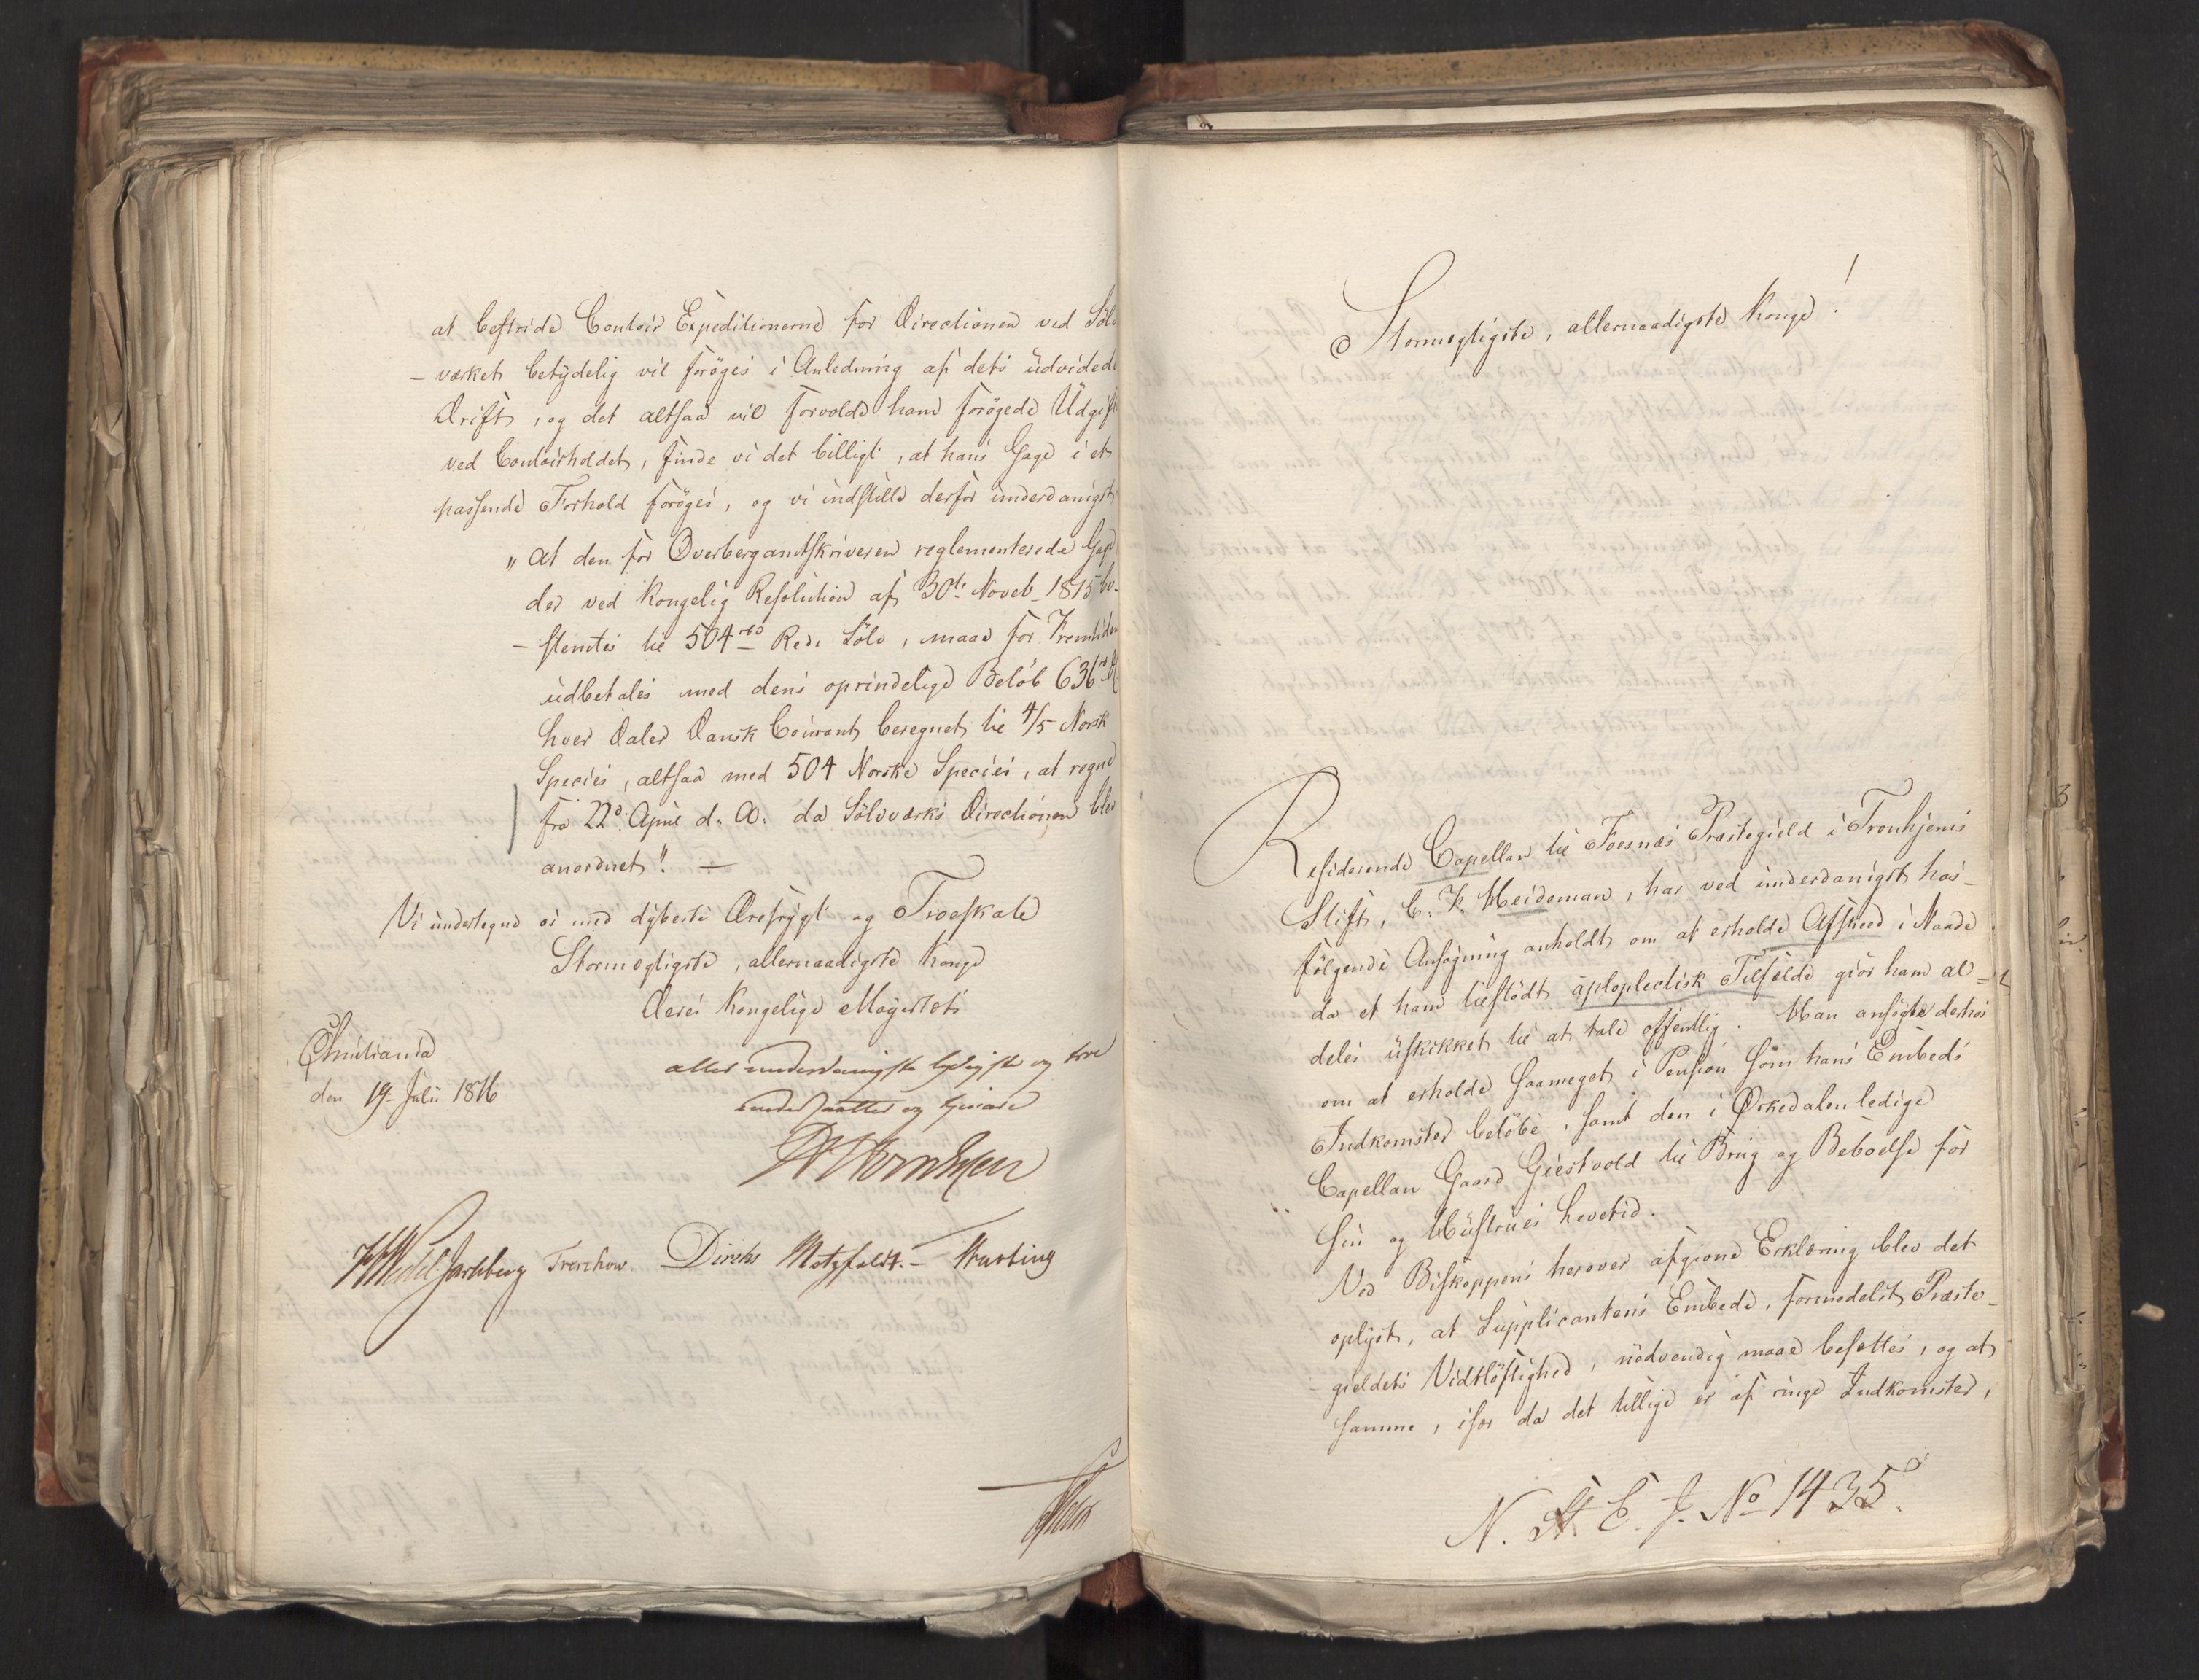 at bestride Contoir Expeditionerne for Directionen ved Sölv
- værket betÿdelig vil foröges i Anledning af dets üdvidede
Drift, og det altsaa vil forvolde ham forögede Üdgift
ved Contoirholdet, finde vi det billigt, at hans Gage i et
passende Forhold foröges, og vi indstille derfor ünderdanigst
„ at den for Overbergamtskriveren reglementerede Gage
der ved Kongelig Resolütion af 30te Noveb. 1815 be-
- stemtes til 504 rbd Rede Sölv, maae for Fremtiden
üdbetales med dens oprindelige Belöb 636 rd
hver Daler Dansk Coürant beregnet til 4/5 Norsk
Species, altsaa med 504 Norske Species, at regne
fra 22d April d. A. da Sölvværks Directionen blev
anordnet". —
Vi ündertegne os med dÿbeste Ærefrÿgt og Troeskab
Stormægtigste, allernaadigste Konge
Deres Kongelige Mayestæts
Christiania
den 19 Julii 1816
allerunderdanigste lydigste og troe
undersaatter og tienere
Wedel Jarlsberg Treschow. Diriks Motzfeldt. - Krebting
Stormægtigste, allernaadigste Konge!
Residerende Capellan til Foesnæs Præstegield i Tronhjems
Stift, C. K. Heideman, har ved ünderdanigst hos-
fölgende Ansögning anholdt om at erholde Afskeed i Naade
da et ham tilstödt apoplectisk Tilfælde giör ham al=
deles üskikket til at tale offentlig. Han ansögte derhos
om at erholde saameget i Pension som hans Embeds
Indkomster belöbe, samt den i Ørkedalen ledige
Capellan Gaard Giestvold til Brüg og Beboelse for
sin og Hüstrües Levetid.
Ved Biskoppens herover afgivne Erklæring blev det
oplÿst, at Süpplicantens Embede, formedelst Præste-
gieldets Vidtlöftighed, nödvendig maae besættes, og at
samme, især da det tillige er af ringe Indkomster,
N. St. E. J. No 1435.